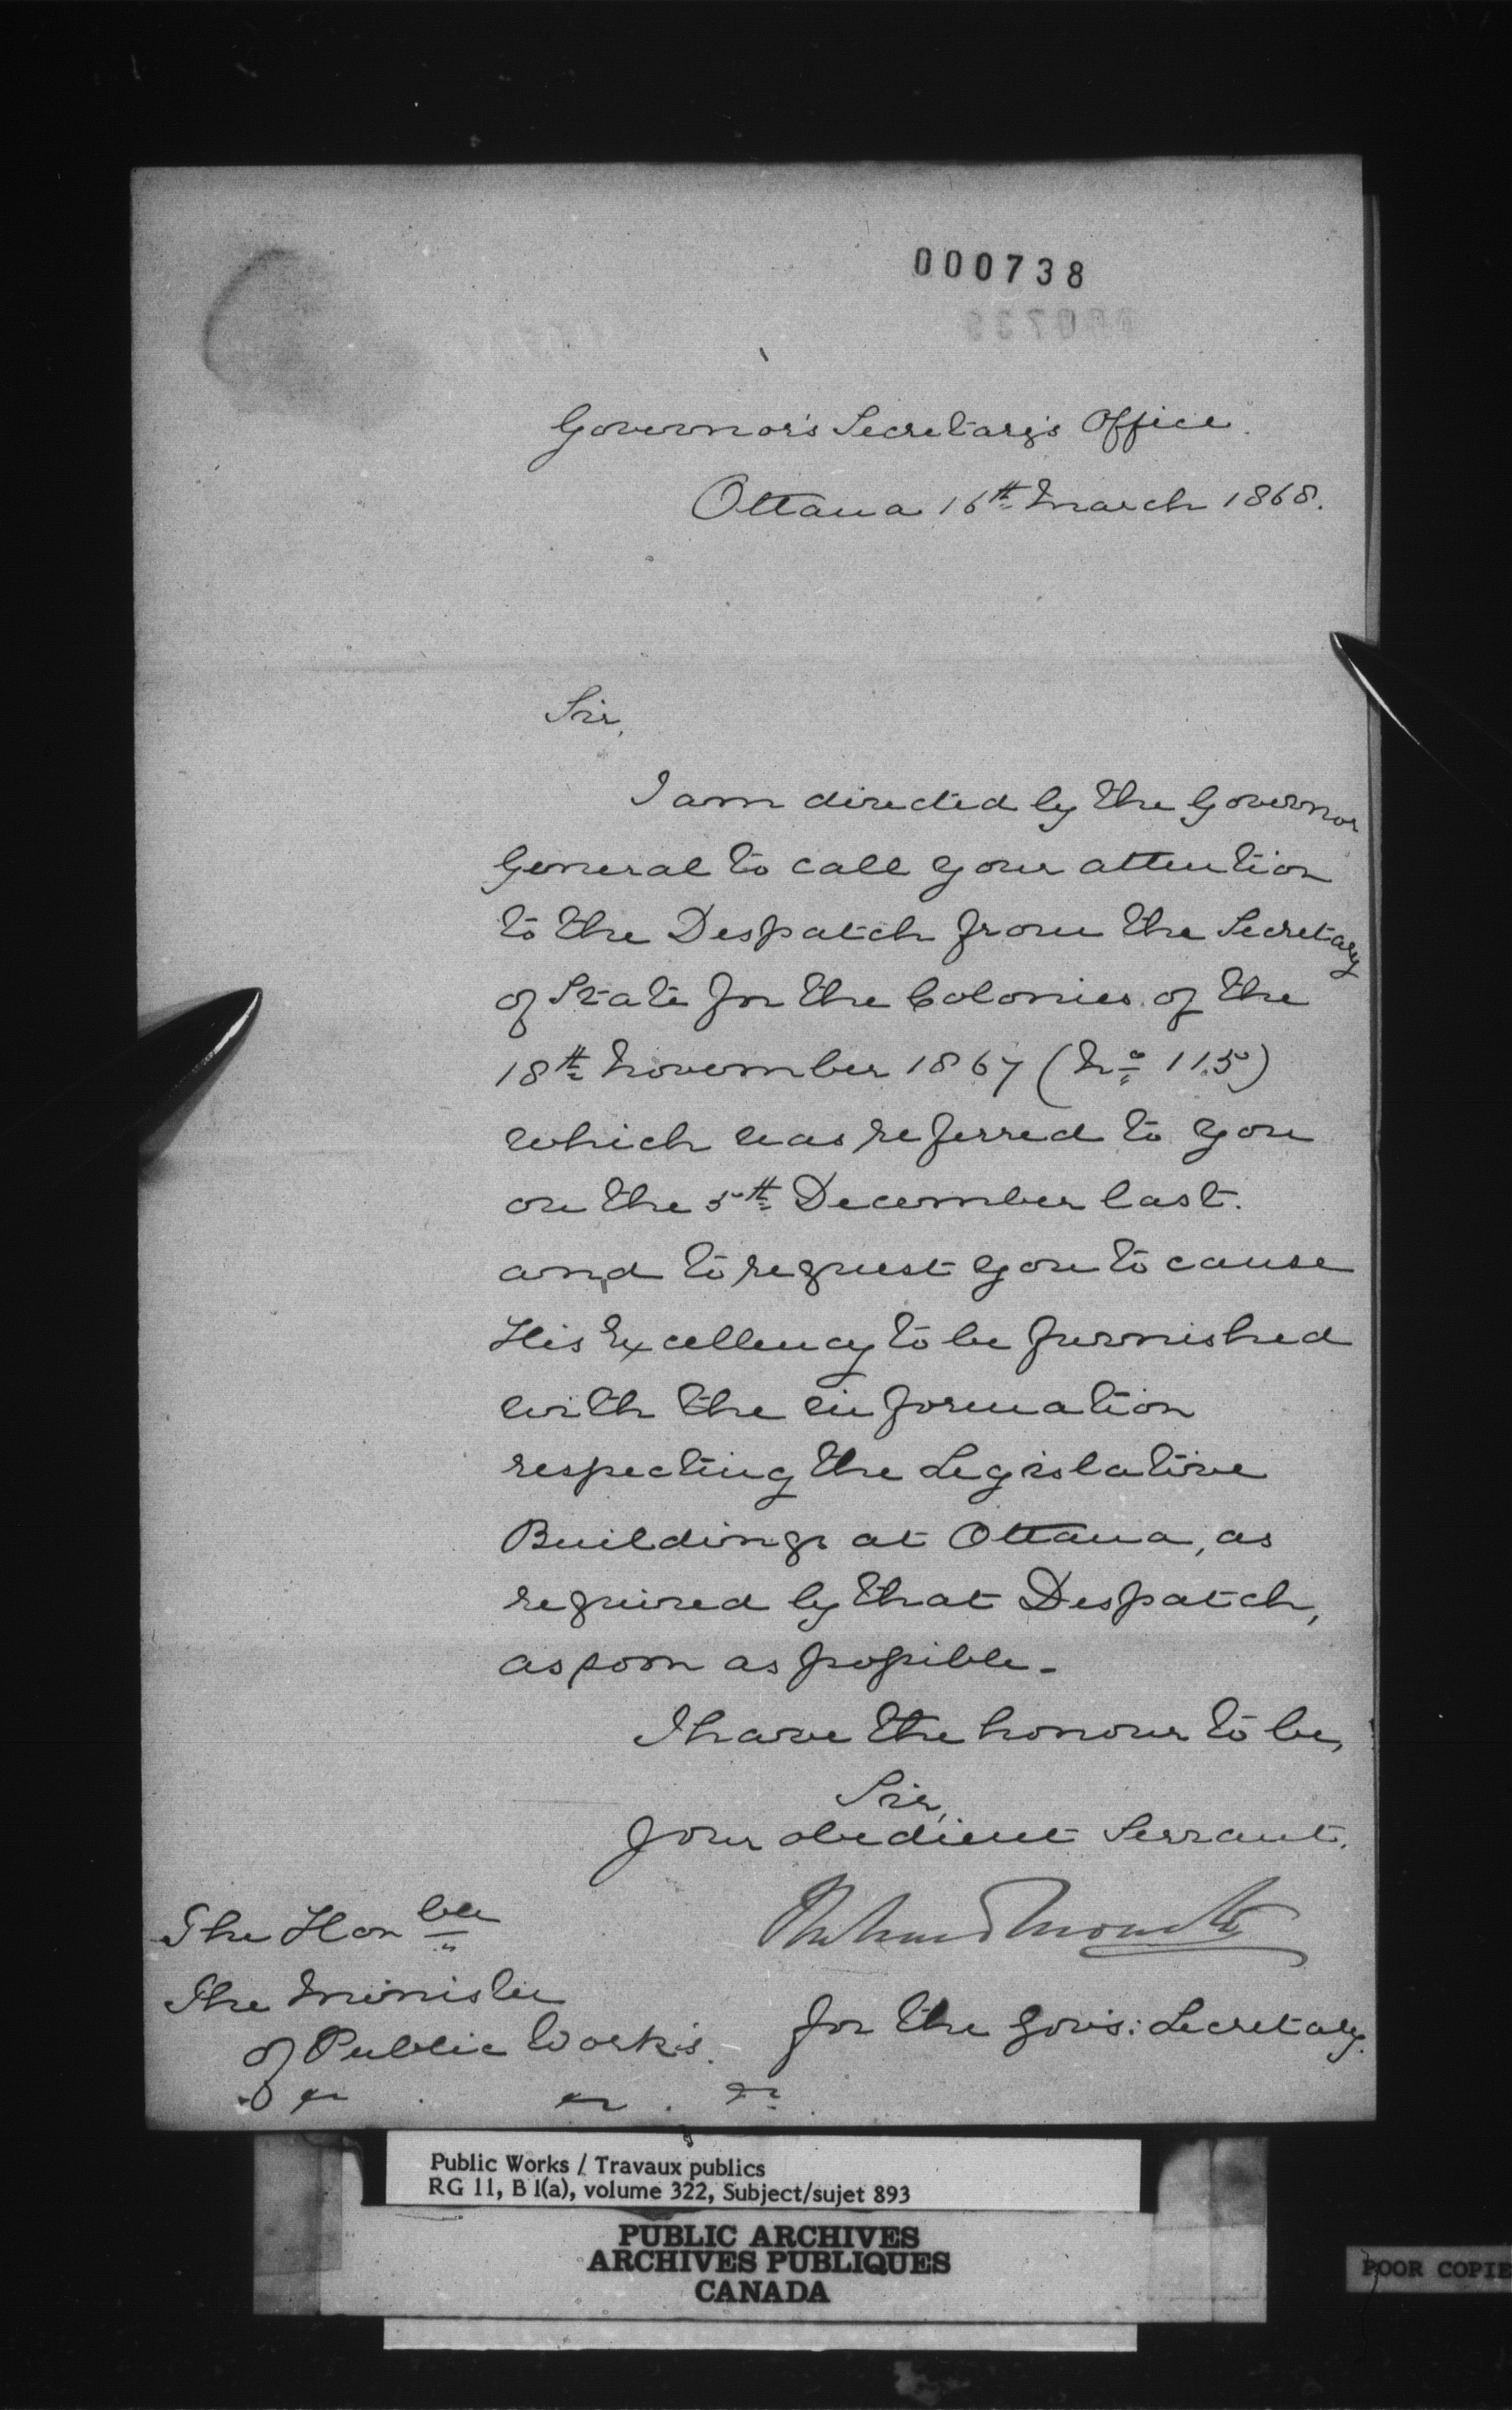 000738
Governor's Secretary's Office.
Ottawa 16th March 1868.
Sir,
I am directed by the Governor
General to call your attention
to the Despatch from the Secretary
of State for the Colonies of the
18th November 1867 (No 115)
which was referred to you
on the 5th December last.
and to request you to cause
His Excellency to be furnished
with the information
respecting the Legislative
Buildings at Ottawa, as
required by that Despatch,
as soon as possible.
I have the honour to be,
Sir,
Your obedient Servant.
for the Govr's: Secretary.
The Honble
The Minister
of Public Works.
Public Works / Travaux publics
RG 11, B 1(a), volume 322, Subject/sujet 893
PUBLIC ARCHIVES
ARCHIVES PUBLIQUES
CANADA
POOR COPIE